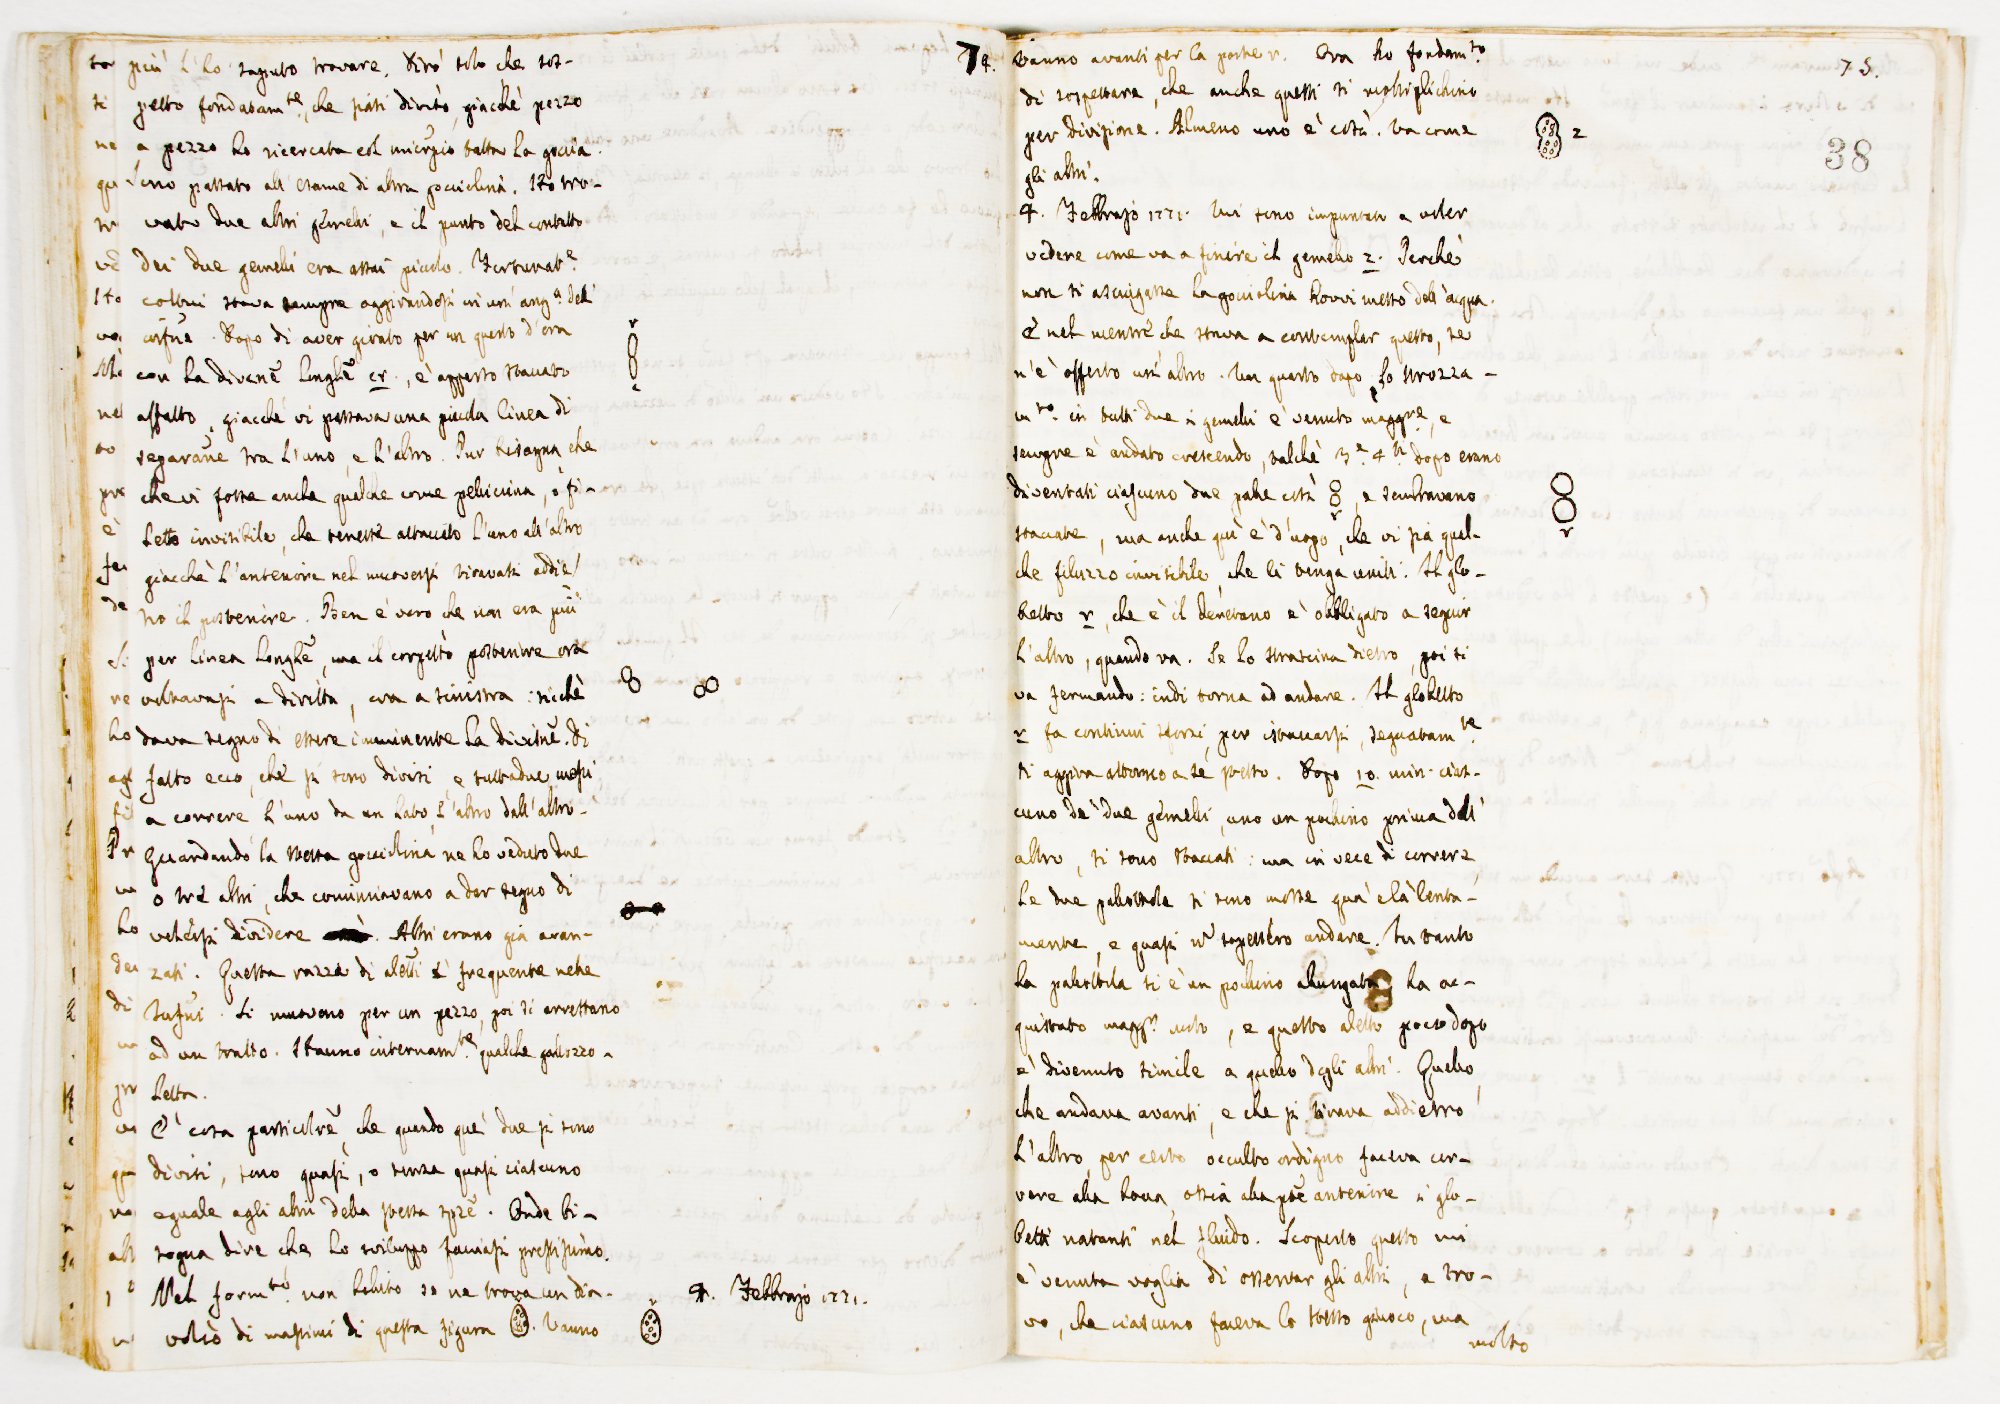 74.
più l'ho saputo trovare. Dirò solo che sos-
petto fondatam.te, che siasi diviso, giacchè pezzo
a pezzo ho ricercata col micropio tutta la goccia.
Sono passato all'esame di altra gocciolina. Ho tro-
vato due altri gemelli, e il punto del contatto
dei due gemelli era assai picolo. Fortunat.e
costui stava sempre aggirandosi in un ang.o dell'
. Dopo di aver girato per un quarto d'ora
con la divisne longhe cr., è apparso staccato
affatto, giacchè vi passava una picola linea di
separane tra l'uno, e l'altro. Pur bisogna che
che vi fosse anche qualche come pellicina, o fi-
letto invisibile, che tenesse attaccato l'uno all'altro
giacchè l'anteriore nel muoversi tiravasi addie/
tro il posteriore. Ben è vero che non era più
per linea longhe, ma il corpetto posteriore ora
voltavasi a diritta, ora a sinistra: sicchè
dava segno di essere imminente la divisne. Di
fatto ecco, che si sono divisi, e tuttadue messi
a correre l'uno da un lato, l'altro dall'altro.
Guardando la stessa gocciolina ne ho veduto due
o tre altri, che cominciavano a dar segno di
volersi dividere. Altri erano già avan-
zati. Questa razza di è frequente nelle
. Si muovono per un pezzo, poi si arrestano
ad un tratto. Hanno internam.te qualche gallozzo-
letta.
E' cosa particolre, che quando que' due si sono
divisi, sono quasi, o senza quasi ciascuno
eguale agli altri della stessa spze. Onde bi-
sogna dire che lo sviluppo facciasi prestissimo.
Nel form.to non bollito se ne trova un dia-
volio di massimi di questa figura. Vanno
r
c
r
4. Febbrajo 1771.
75.
38
Vanno avanti per la parte r. Ora ho fondam.to
di sospettare, che anche questi si moltiplichino
per divisione. Almeno uno è così. Va come
gli altri.
2
4. Febbrajo 1771. Mi sono impuntato a voler
vedere come va a finire il gemello 2. Perchè
non si asciugasse la gocciolina hovvi messo dell'acqua.
E nel mentre che stava a contemplar questo, se
n'è offerto un'altro. Un quarto dopo lo strozza-
m.to in tutti due i gemelli è venuto maggre, e
sempre è andato crescendo, talchè 3.e 4.ti dopo erano
diventati ciascuno due palle così 8, e sembravano
r
staccate, ma anche quì è d'uopo, che vi sia qual-
che filuzzo invisibile, che li tenga uniti. Il glo-
betto r, che è il deretano è obbligato a seguir
l'altro, quando va. Se lo strascina dietro, poi si
va fermando: indi torna ad andare. Il globetto
r fa continui sforzi, per istaccarsi, segnatam.te
si aggira attorno a se stesso. Dopo 10. min. cias-
cuno de' due gemelli, uno un pochino prima dell'
altro, si sono staccati: ma in vece di correre,
le due pallottole si sono mosse qua e là lenta-
mente, e quasi n sapessero andare. In tanto
la pallottola si è un pochino allungata, ha ac-
quistato magg.r moto, e questo poco dopo
è divenuto simile a quello degli altri. Quello,
che andava avanti, e che si tirava addietro
l'altro, per certo occulto ordigno faceva cor-
rere alla bocca, ossia alla pte anteriore i glo-
betti natanti nel fluido. Scoperto questo mi
è venuta voglia di osservar gli altri, e tro-
vo, che ciascuno faceva lo stesso giuoco, ma
molto
r